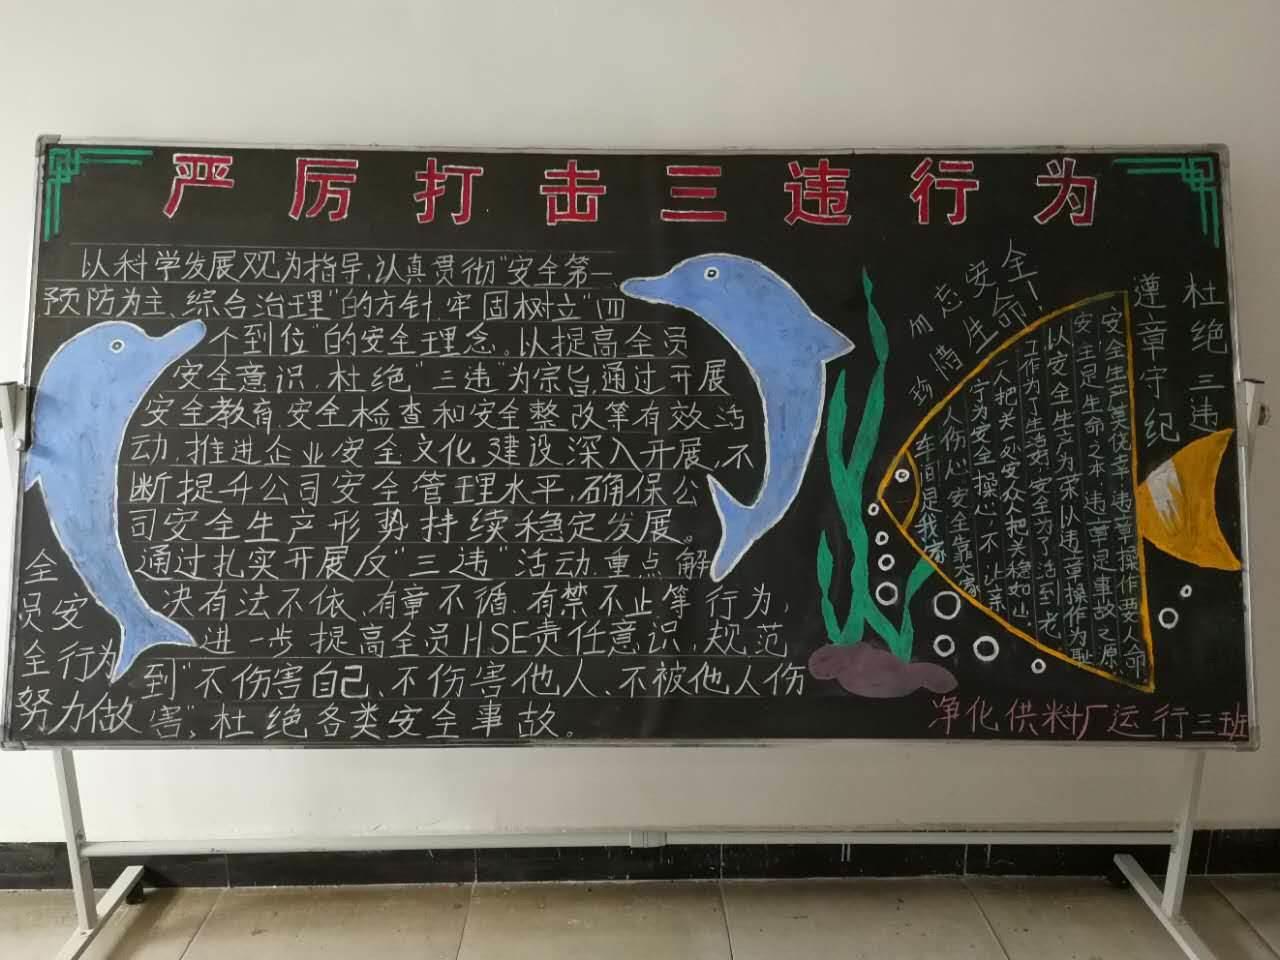 严厉打击三违行为
以科学发展观为指导,认真贯彻"安全第一
预防为主、综合治理"的方针,牢固树立"四
个到位"的安全理念。以提高全员
安全意识,杜绝"三违"为宗旨,通过开展
安全教育,安全检查和安全整改等有效活
动,推进企业安全文化建设深入开展,不
断提升公司安全管理水平,确保公
司安全生产形势持续稳定发展。
通过扎实开展反"三违"活动,重点解
决有法不依,有章不循,有禁不止等行为,
进一步提高全员HSE责任意识,规范
到"不伤害自己、不伤害他人、不被他人伤
害",杜绝各类安全事故。
全
员安
全行为
努力做
勿忘安全
珍惜生命!
杜绝三违
遵章守纪
安全生产莫侥幸 违章操作要人命
安全是生命之本,违章是事故之源
以安全生产为荣,以违章操作为耻
工作为了生活好,安全为了活到老
一人把关一处安,众人把关稳如山
宁为安全操心,不让亲
人伤心 安全靠大家
车间是我家
净化供料厂运行三班